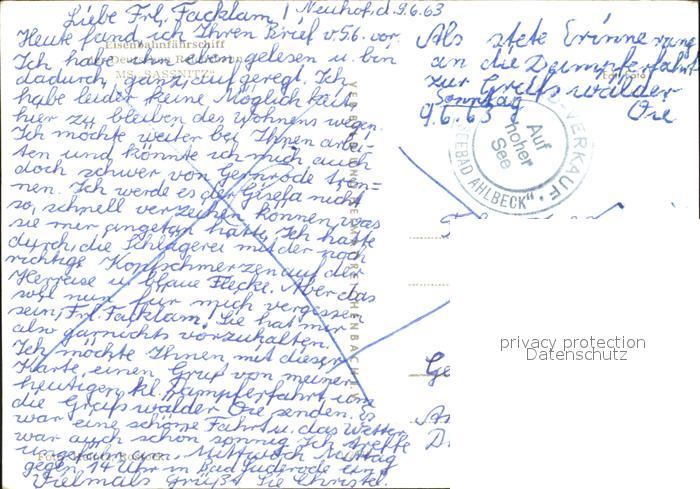 Liebe Frl. Facklam! Neuhof, d 9.6.63
Heute fand ich Ihren Brief v 5.6. vor.
Ich habe ihn eben gelesen u. bin
dadurch ganz aufgeregt. Ich
habe leider keine Möglichkeit
hier zu bleiben des Wohnens wegen.
Ich möchte weiter bei Ihnen arbei-
ten und könnte ich mich auch
doch schwer von Gernrode tren=
nen. Ich werde es der Gisela nicht
so, schnell verzeihen können, was
sie mir angetan hatte. Ich hatte
durch, die Schlägerei mit der noch
richtige Kopfschmerzen auf der
Herreise u. blaue Flecke. Aber das
soll nun für mich vergessen
sein, Frl. Facklam! Sie hat mir
also garnichts vorzuhalten.
Ich möchte Ihnen, mit dieser
Karte, einen Gruß von meiner
heutigen, kl. Dampferfahrt, in
die Greifswalder Oie senden. Es
war eine schöne Fahrt u. das Wetter
war auch schon sonnig. Ich treffe
ungefähr am, Mittwoch Mittag
gegen 14 Uhr in Bad Suderode ein.
Vielmals Grüße Sie Christel.
Eisenbahnfährschiff
MS "SASSNITZ"
Als stete Erinnerung
an die Dampferfahrt
zur Greifswalder
Sonntag Oie
9.6.63
VERKAUF
Auf
hoher
See
SEEBAD AHLBECK"
privacy protection
Datenschutz